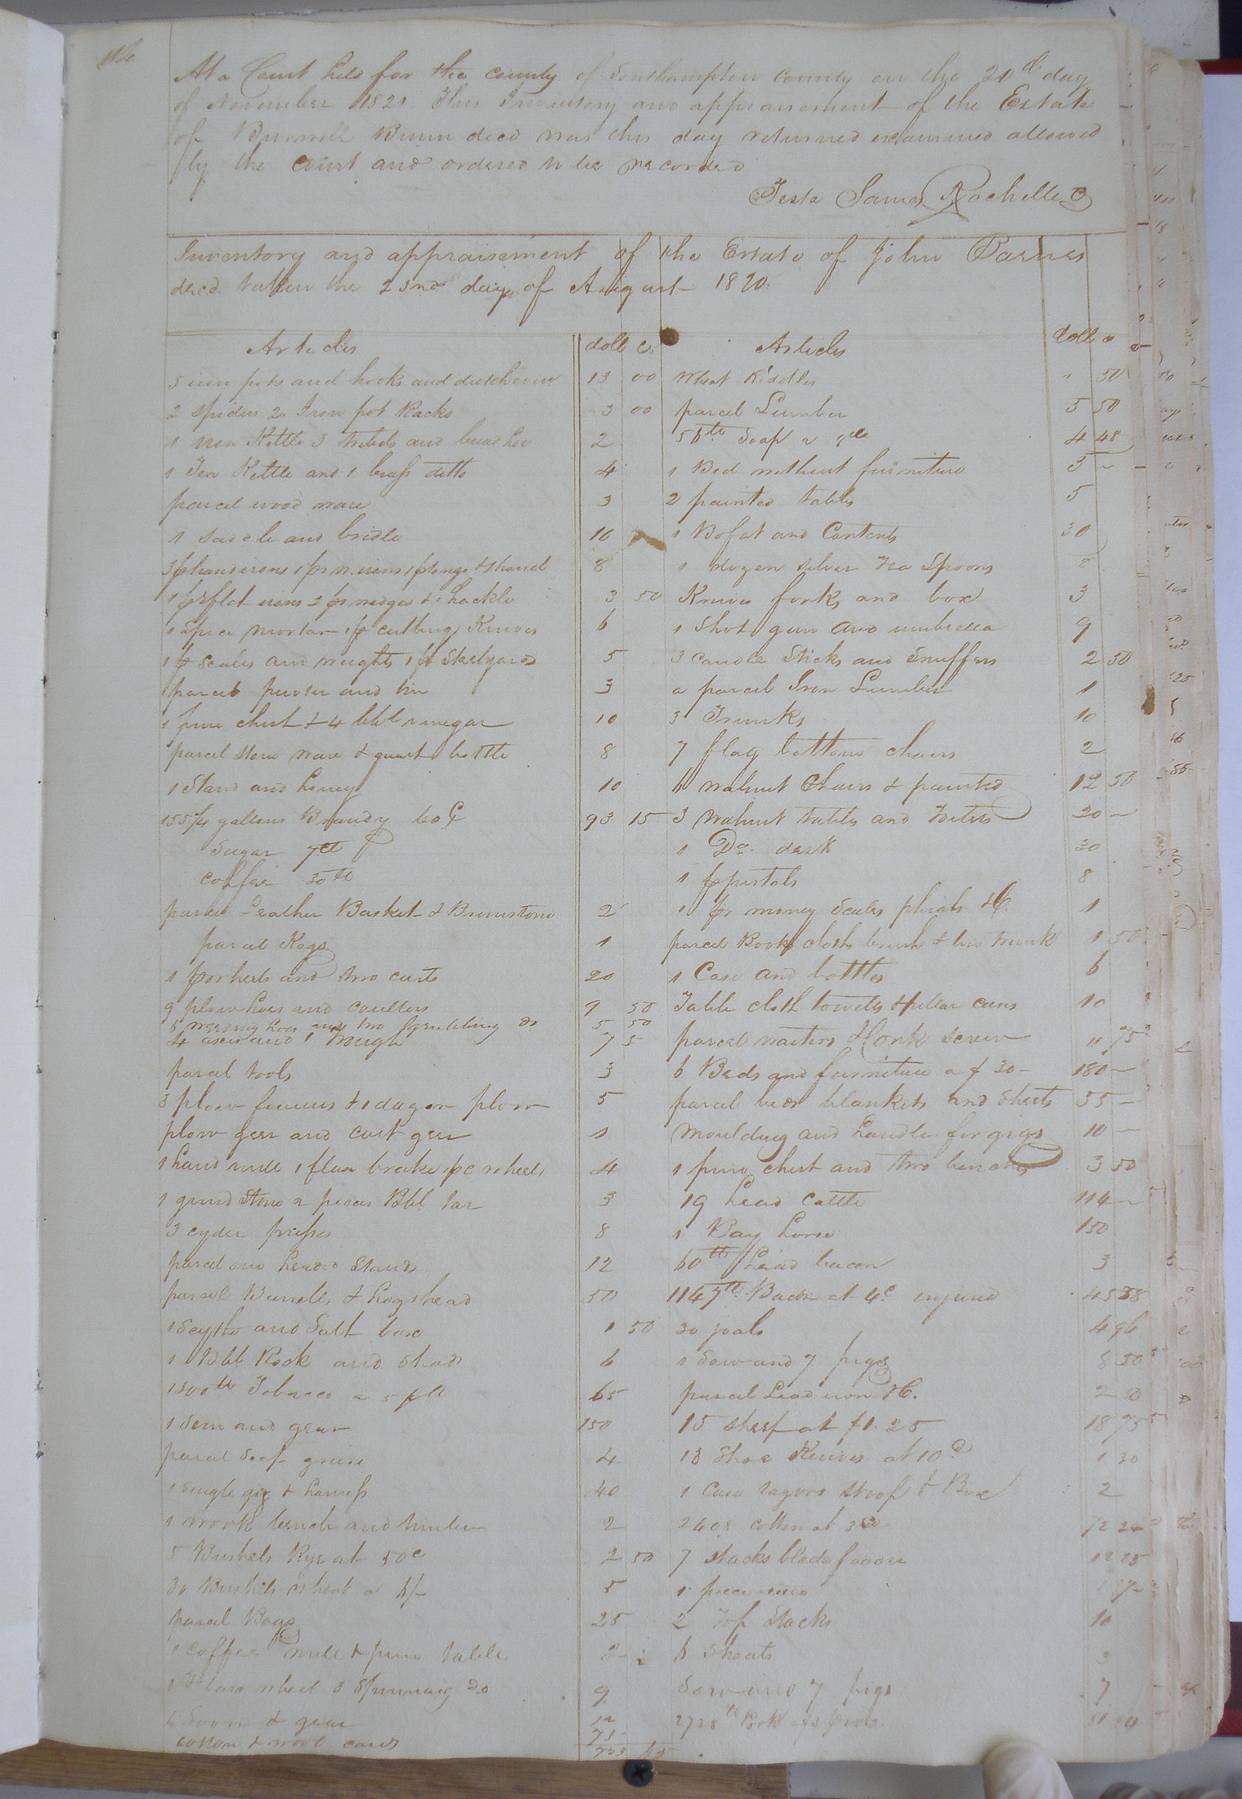 At a Court held for the county of Southampton County on the 20th day
of November 1820 This Inventory and appraisement of the Estate
of Burwell Bunn decd was this day returned examined allowed
by the Court and ordered to be recorded
Teste Saml Rochelle C
Inventory and appraisement of the Estate of John Barnes
decd taken the 23nd day of August 1820
Articles doll C.
5 iron pots and hooks and dutch oven 13 00
2 spiders 2 Iron pot Racks 3 00
1 Iron Kettle 3 and 2
1 Tea Kettle and 1 brass ditto 4
parcel wood ware 3
1 saddle and bridle 10
3 p handirons 1 p 1 p tongs & shovel 8
1 pr flat irons 2 pr wedges & 1 hackle 3 50
1 spice mortar 1 p cutting Knives 6
1 p Scales and weights 1 pr Stealyards 5
1 parcel pewter and tin 3
1 pine chest & 4 bbl vinegar 10
parcel stone ware & quart bottle 8
1 Stand and honey 10
155¼ gallons Brandy 60 C 93 15
Sugar 7 lb
Coffee 30 lb
parcel Leather Basket & Brimstone 2
parcel Kegs 1
1 p wheels and two carts 20
9 plow hoes and coulters 9 50
5 weeding hoes and two grubbing do 5 50
4 axes and 1 7 5
parcel tools 3
3 plow & 1 dagon plow 5
plow gear and cart gear 1
1 hand mill 1 flax brake pc wheels 4
1 grind Stone 2 pieces Bbl Tar 3
3 cyder presses 8
parcel Stands 12
parcel Barrels & hogshead 50
1 Scythe and Salt box 1 50
1 Bbl Rock and Shad 6
1300 lb Tobacco a 5 65
1 and gear 150
parcel 4
1 single gig & harness 40
1 work bench and timber 2
5 Bushels Rye at 50c 2 50
30 Bushels wheat a 5
parcel Bags 25
1 coffee mill & pine table 2
wheel 3 Spinning do 9
Loom & gear 12
cotton & wool cards 75
Articles doll c
Wheat Riddles 50
parcel Lumber 5 50
56 lb Soap a 4 48
1 Bed without furniture 5
2 painted tables 5
1 Bofat and Contents 30
1 dozen silver Tea Spoons 8
Knives forks and box 3
1 Shot gun and umbrella 9
3 candle Sticks and Snuffers 2 50
a parcel Iron Lumber 1
3 Trunks 10
7 flag bottom chairs 2
6 walnut Chairs & painted 12 50
3 walnut tables and 20
1 Do desk 30
1 p pistols 8
1 pr money Scales phials &C. 1
parcel Books cloth brush & tin trunk 1 50
1 Case and bottles 6
Table cloth towels & pillar cases 10
parcel waiters & Cork Screw " 75
6 Beds and furniture a $30 180
parcel beds blankets and Sheets 55
Moulding and handle for gigs 10
1 pine chest and two benches 3 50
19 head cattle 114
1 Bay horse 150
60 lb bacon 3
1147 lb Bacon at 4c 45 88
30 4 96
1 Sow and 7 pigs 8 50
parcel Lead iron &C. 2 50
15 sheep at $1.25 18 75
13 Shoe Knives at 10c 1 30
1 Case razors Strop & Box 2
2408 cotton at 3c 72 24
7 stacks blade fodder
1 piece
2 Top Stacks 10
6 Shoats 3
Sow and 7 pigs 7